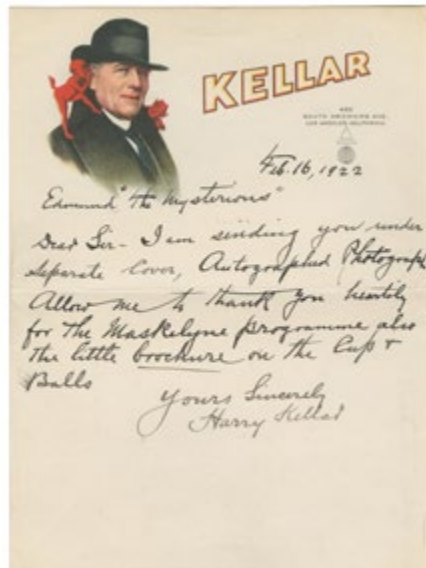 KELLAR
460
SOUTH ARDMORE AVE.
LOS ANGELES, CALIFORNIA
Feb. 16, 1922
Edmund "The Mysterious"
Dear Sir- I am sending you under
separate cover, Autographed Photograph
Allow me to thank you heartily
for the Maskelyne programme also
the little brochure on the Cup &
Balls
Yours Sincerely
Harry Kellar